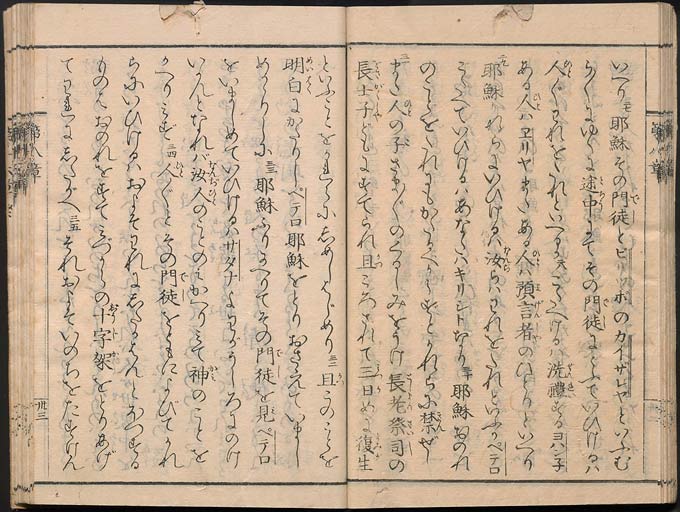 いへり 二七 耶蘇その門徒とピリッポのカイザレヤといふむ
らにゆくに途中にてその門徒にとふていひけるハ
人〻われをたれといへるや 二八 こたへけるハ洗禮するヨハ子
ある人ハヱリヤまたある人ハ預言者のひとりといへり
二九 耶蘇かれらにいひけるハ汝らハわれをたれといふかペテロ
こたへていひけるハあなたハキリシトなり 三十 耶蘇おのれ
のことをたれにもかたるべからずとかれらに禁ぜし
三一 また人の子さま〴〵のくるしみをうけ長老祭司の
長士子ともにすてられ且ころされて三日めに復生
といふことをかれらにしめしはじめり 三二 且このことを
明白にかたりペテロ耶蘇をとりおさえていまし
めかゝりしに 三三 耶蘇ふりかへりてその門徒を見ペテロ
をいましめていひけるハサタナよわがうしろにのけ
いかんとなれバ汝人のことのみかへりみて神のことを
かへりみず 三四 人〻とその門徒をともによびてかれ
らにいひけるハおよそわれにしたがはんとおもふ
ものハおのれをすてみづからの十字架をとりあげ
てわれにしたがへ 三五 それおよそいのちをたすけん
第八章
卅三